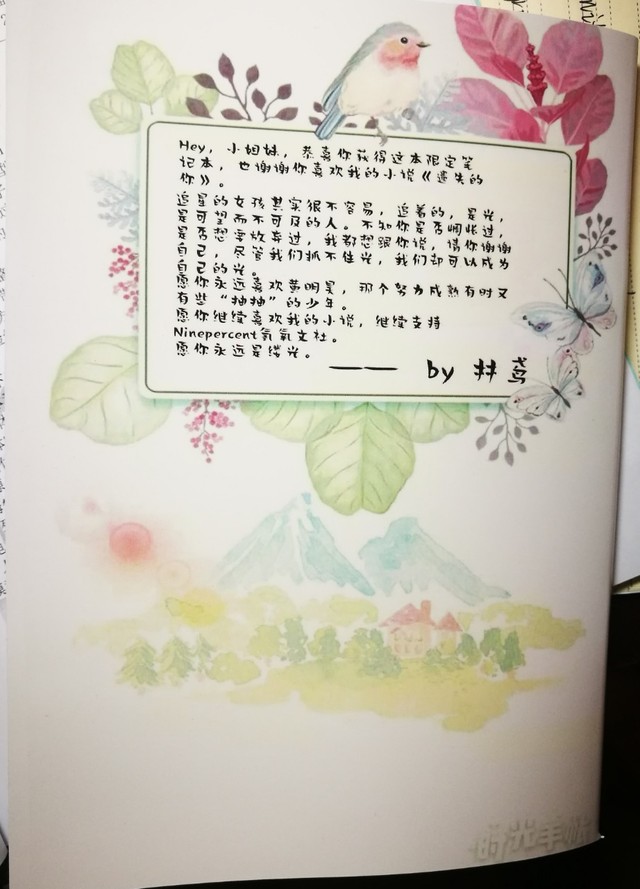 Hey，小姐妹，恭喜你获得这本限定笔
记本，也谢谢你喜欢我的小说《遗失的
你》。
追星的女孩其实很不容易，追着的，是光，
是可望而不可及的人。不知你是否惆怅过，
是否想要放弃过，我都想跟你说，请你谢谢
自己，尽管我们抓不住光，我们却可以成为
自己的光。
愿你永远喜欢黄明昊，那个努力成熟有时又
有些“抽抽”的少年。
愿你继续喜欢我的小说，继续支持
Ninepercent氖氦文社。
愿你永远是缕光。
—— by 林鸢
时光年